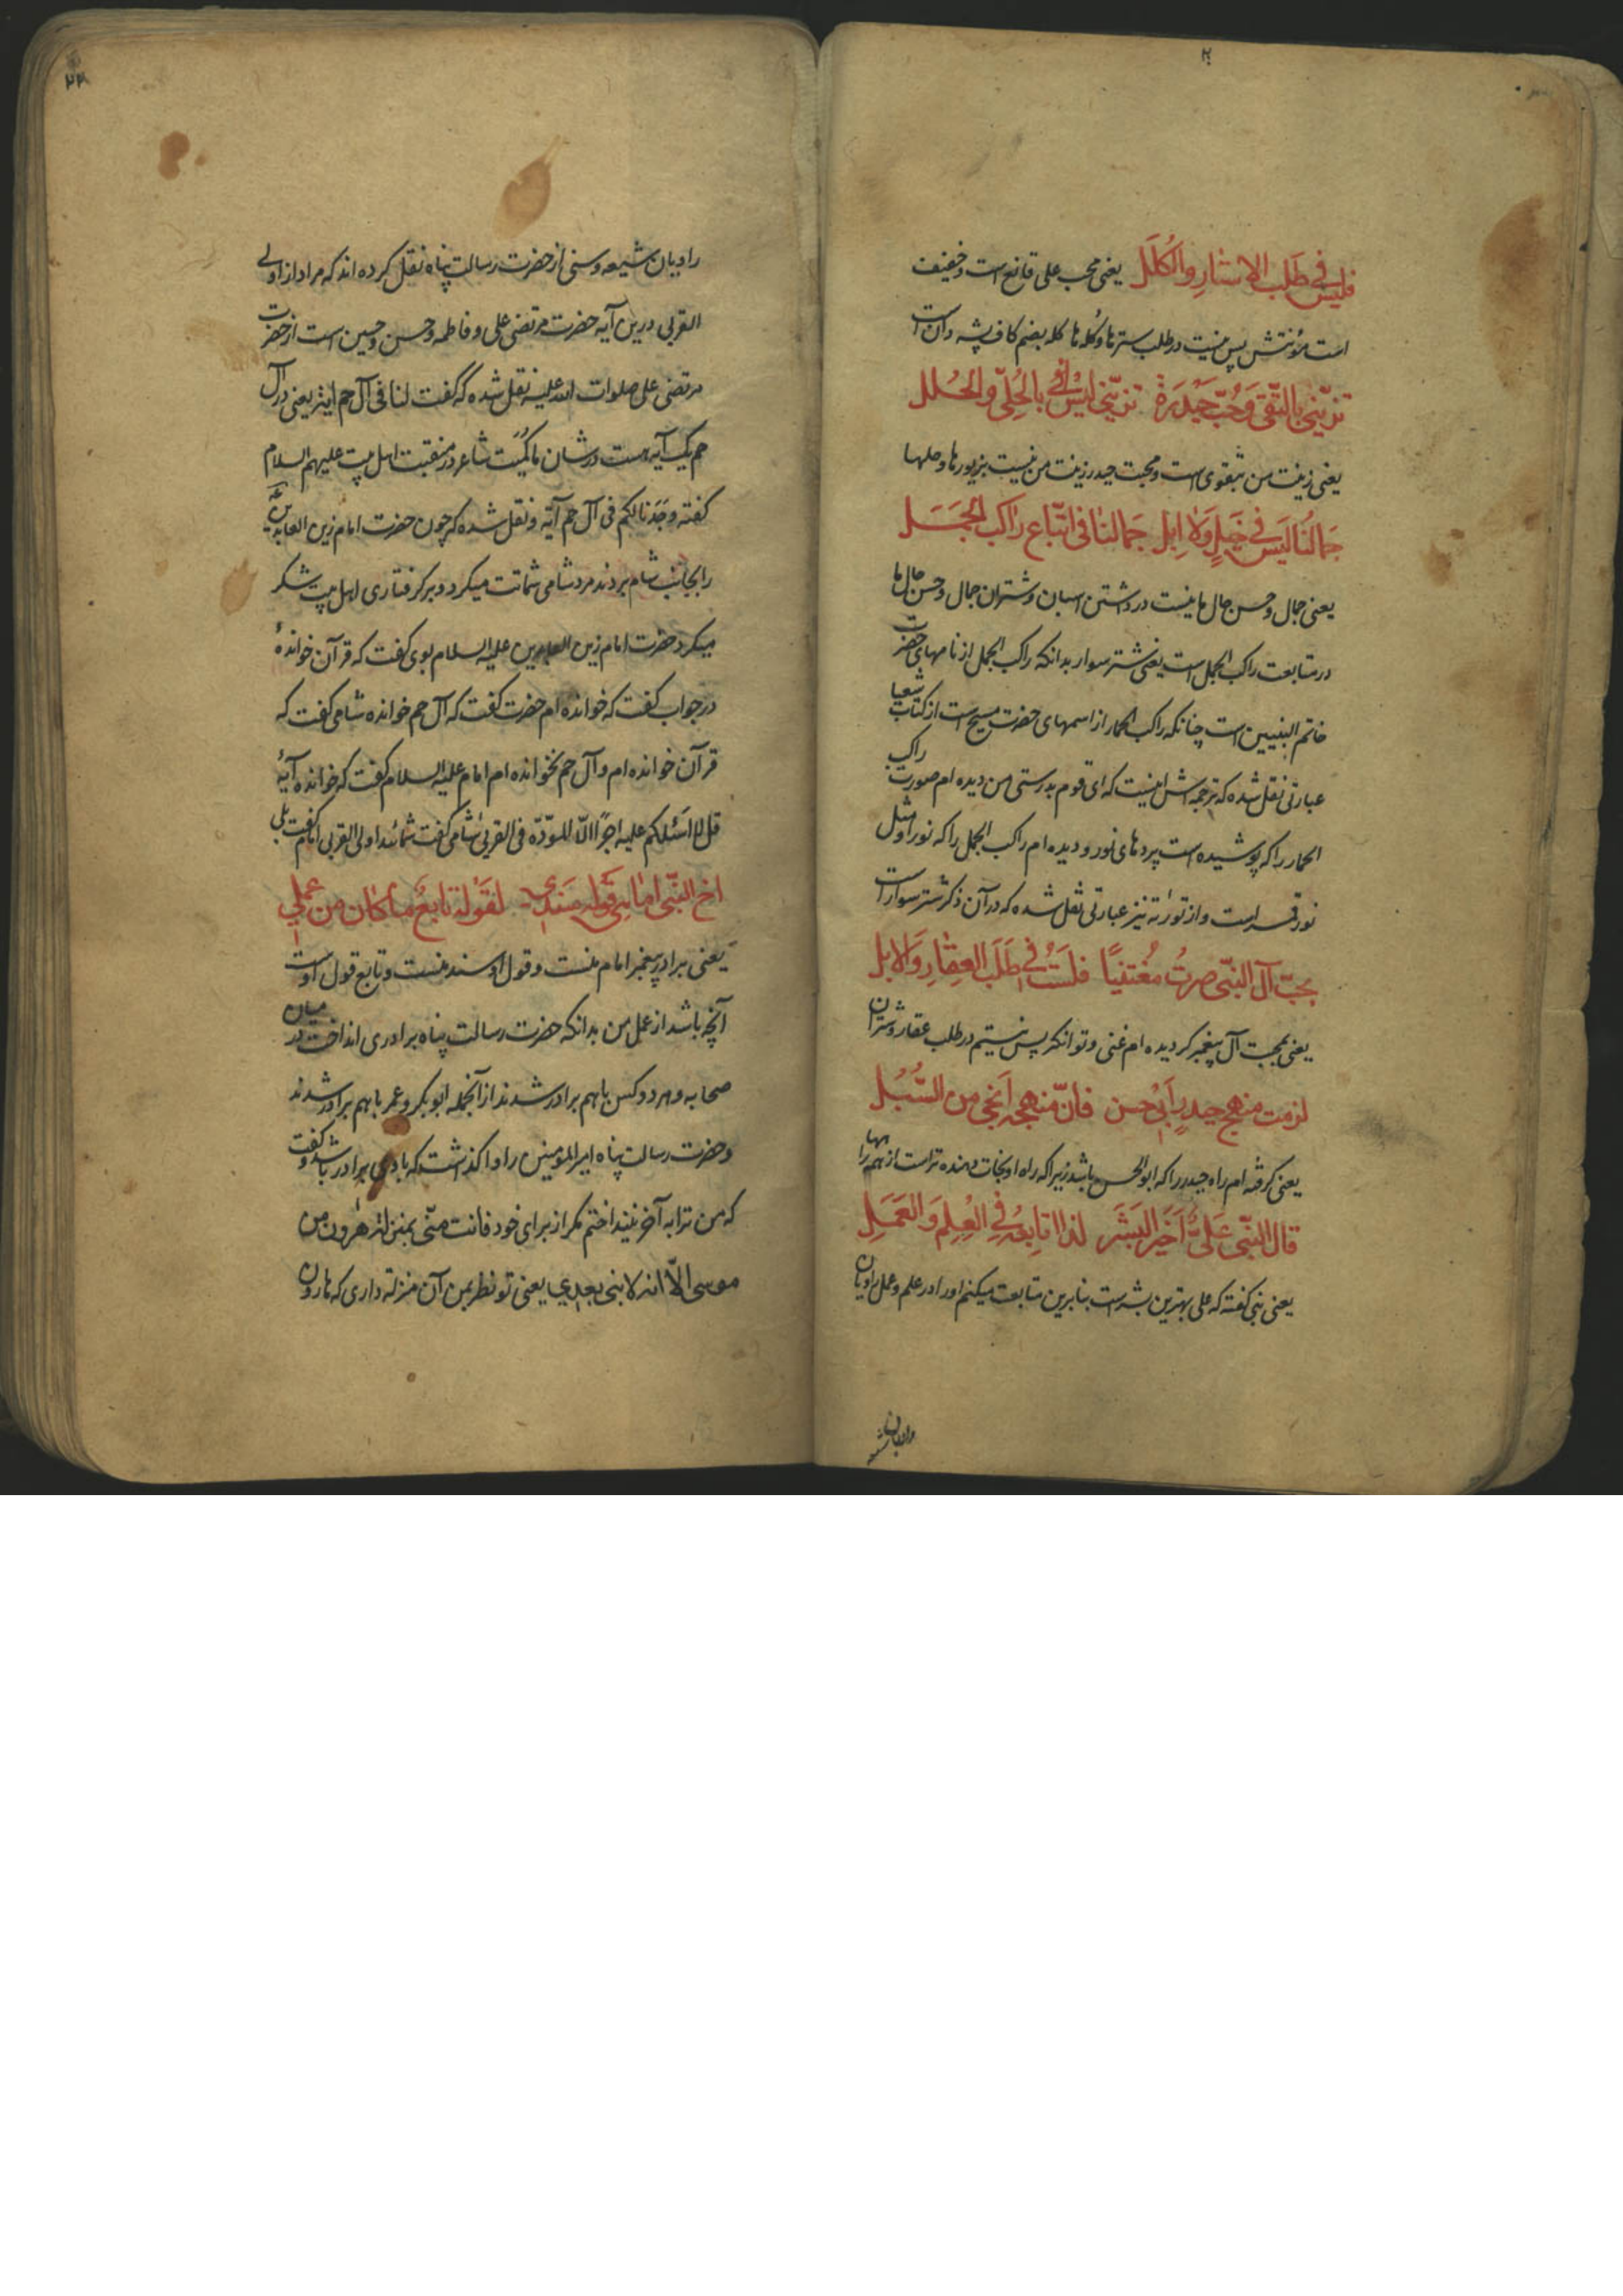 فلیس فی طَلب الاستارِ والکُلَل یعنی محب علی قانع است و خفیف
است مؤنتش پس نیست در طلب سترها و کُله‌ها کله بضم کاف پشه دان است
تزیّنی بالتّقی وَ حُبّ حَیْدَرَة تزیّنی لیْسَ فی بالحُلِیّ و الحُلل
یعنی زینت من بتقوی است و محبت حیدر زینت من نیست بزیورها و حلها
جَمالنا لَیسَ فی خَیلٍ وَلا اِبل جَمالنا فی اتّباع راکب الجَمَل
یعنی جمال و حسن حال ما نیست در داشتن اسبان و شتران جمال و حسن حال ما
در متابعت راکب الجمل است یعنی شتر سوار بدانکه راکب الجمل از نامهای حضرت
خاتم النبیین است چنانکه راکب الحمار از اسمهای حضرت مسیح است از کتاب شعیا
عبارتی نقل شده که ترجمه اش اینست که ای قوم بدرستی من دیده ام صورت راکب
الحمار را که پوشیده است پردهای نور و دیده ام راکب الجمل را که نور او مثل
نور قمر است و از توراته نیز عبارتی نقل شده که در آن ذکر شتر سوار است
بحبّ آل النّبی صرتُ مُغتنیًا فلَستُ فی طَلَب العِقارِ وَالابل
یعنی بمحبت آل پیغمبر گردیده ام غنی و توانگر پس نیستم در طلب عقار و شتران
لزمت منهج حیدرٍ اَبی حسن فانّ منهجه اَنجی من السُّبُل
یعنی گرفته ام راه حیدر را که ابوالحسن باشد زیرا که راه او نجات دهنده تر است از همه راهها
قال النّبی عَلیٌّ اَخَیر البَشَر لذا اتابِعهُ فی العِلمِ وَ العَمَلِ
یعنی نبی گفته که علی بهترین بشر است بنابرین متابعت میکنم او را در علم و عمل راویان
راویان ش
راویان شیعه و سنی از حضرت رسالت پناه نقل کرده اند که مراد از اولی
القربی درین آیه حضرت مرتضی علی و فاطمه و حسن و حسین است از حضرت
مرتضی علی صلوات الله علیه نقل شده که گفت لنا فی آل حم آیة یعنی در آل
حم یک آیه هست در شان ما کُمیت شاعر در منقبت اهل بیت علیهم السلام
گفته وجَدنا لکم فی آل حم آیة و نقل شده که چون حضرت امام زین العابدین
را بجانب شام بردند مرد شامی شماتت میکرد و بر گرفتاری اهل بیت شکر
میکرد حضرت امام زین العابدین علیه السلام بوی گفت که قرآن خواندهٔ
در جواب گفت که خوانده ام حضرت گفت که آل حم خوانده شامی گفت که
قرآن خوانده ام و آل حم نخوانده ام امام علیه السلام گفت که خوانده آیهٔ
قل لا اسئلکم علیه اجرًا الّا المودّة فی القربی شامی گفت شمائید اولی القربی امام گفت بلی
اخ النّبی امامی قَوله سَندی لقَوله تابعٌ ما کان من عملی
یعنی برادر پیغمبر امام منست و قول او سند منست و تابع قول اوست
آنچه باشد از عمل من بدانکه حضرت رسالت پناه برادری انداخت در میان
صحابه و هر دو کس باهم برادر شدند از آنجمله ابوبکر و عمر باهم برادر شدند
و حضرت رسالت پناه امیر المومنین را واگذاشت که با وی برادر باشد و گفت
که من ترا به آخر نینداختم مگر از برای خود فانت منّی بمنزلة هٰرون من
موسی الّا انه لا نبی بعدی یعنی تو نظر بمن آن منزله داری که هارون